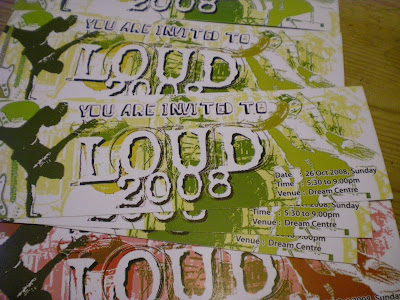 2008
YOU ARE INVITED TO
LOUD
2008
YOU ARE INVITED TO
LOUD
2008
Date : 26 Oct 2008, Sunday
Time : 5:30 to 9.00pm
Venue : Dream Centre
2008, Sunday
Time : 5:30 to 9.00pm
Venue : Dream Centre
2008
00pm
Venue : Dream Centre
LOUD
2008, Sunday